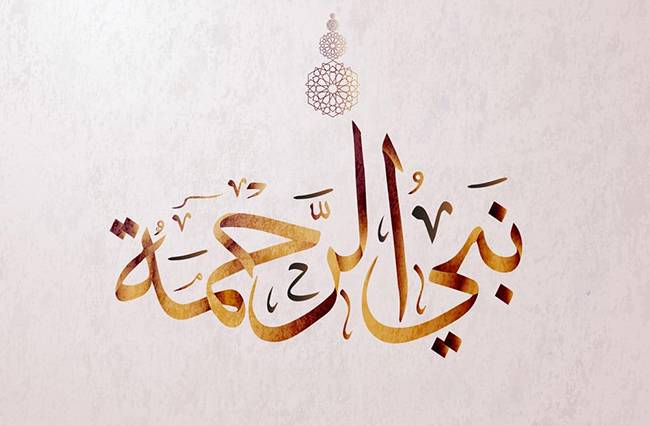 نَبيُّ الرَّحْمَة